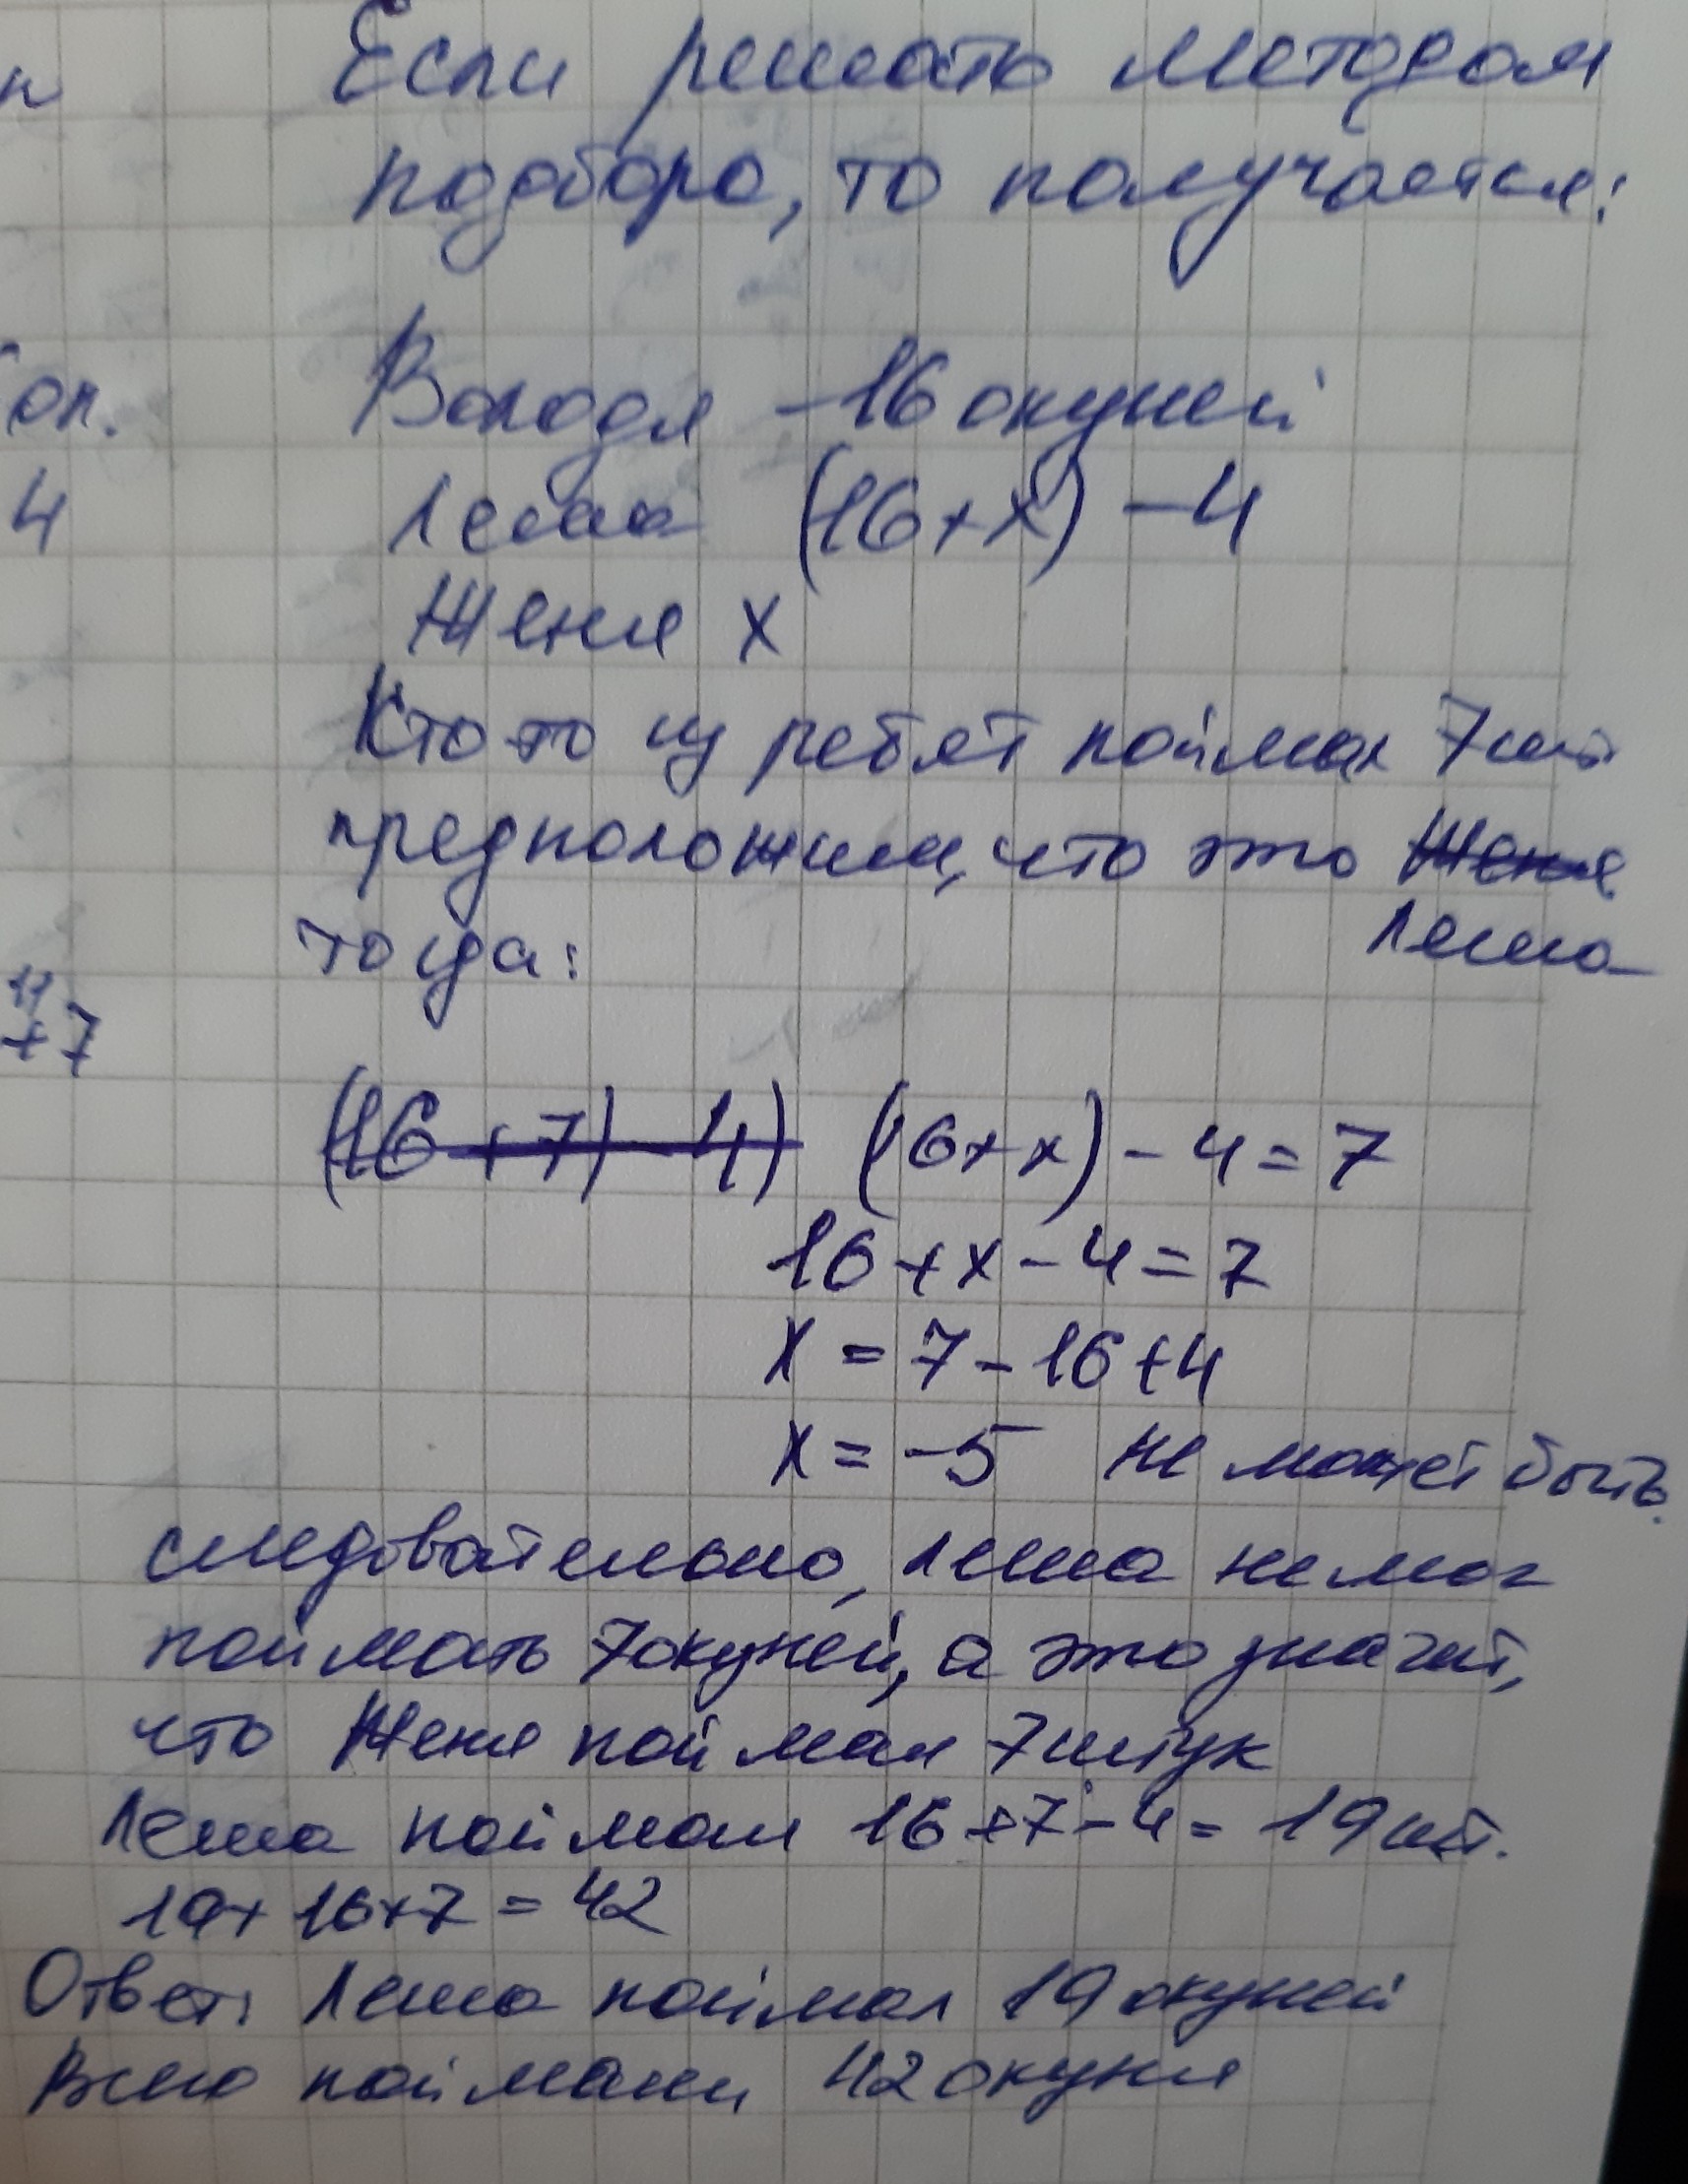 Если решать методом
подбора, то получается:
оп.
Володя - 16 окуней
4
Леша (16+х) - 4
Женя х
Кто то из ребят поймал 7 шт
предположим, что это Женя
Леша
тогда:
11
+7
(16+7)-4) (16+х)-4=7
16+х-4=7
х=7-16+4
х=-5 не может быть.
следовательно, Леша не мог
поймать 7 окуней, а это значит,
что Женя поймал 7 штук
Леша поймал 16+7-4=19 шт.
19+16+7=42
Ответ: Леша поймал 19 окуней
Всего поймали 42 окуня